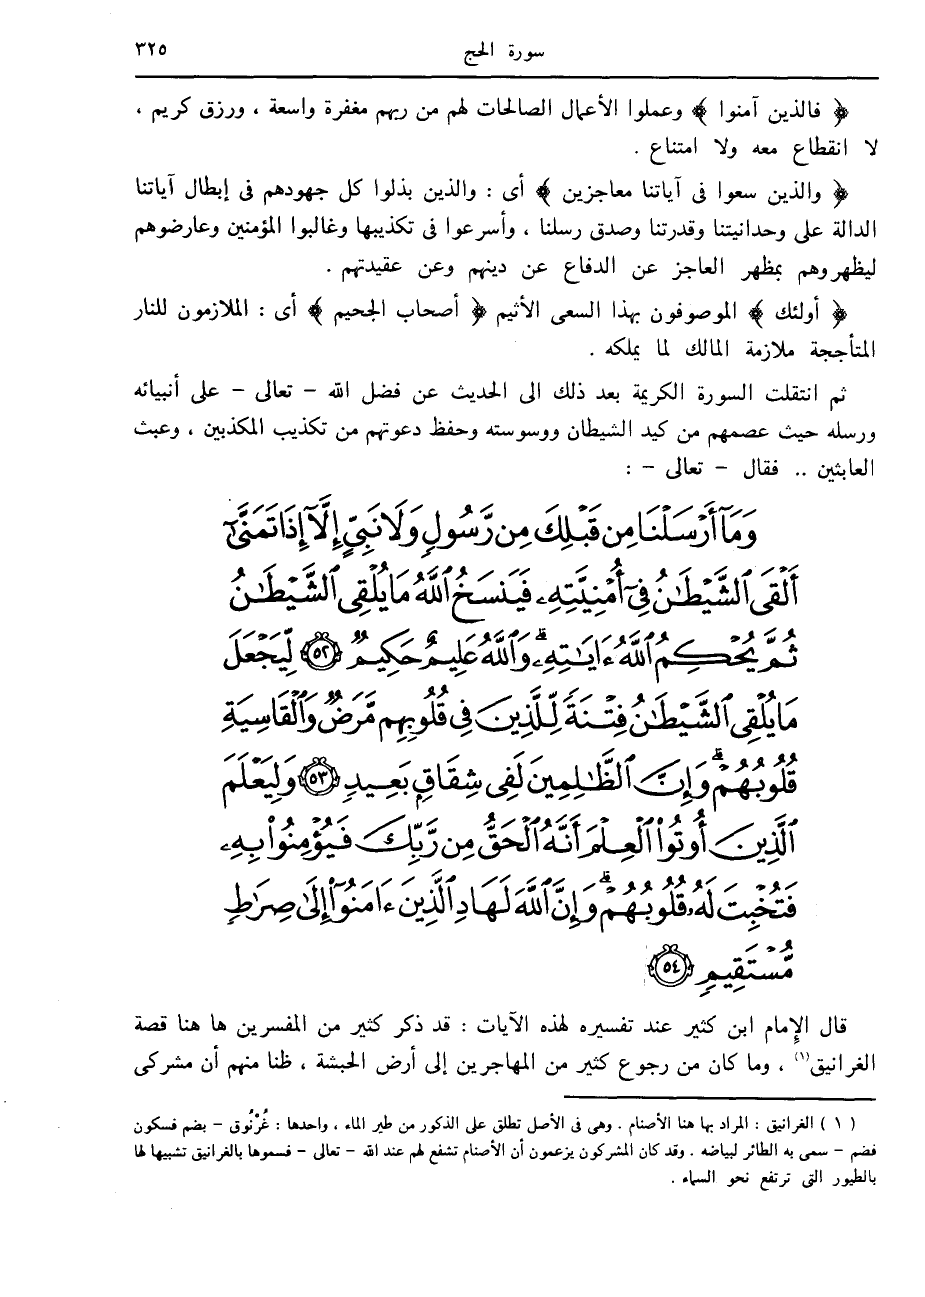 سورة الحج ٣٢٥
﴿ فالذين آمنوا ﴾ وعملوا الأعمال الصالحات لهم من ربهم مغفرة واسعة ، ورزق كريم ،
لا انقطاع معه ولا امتناع .
﴿ والذين سعوا فى آياتنا معاجزين ﴾ أى : والذين بذلوا كل جهودهم فى إبطال آياتنا
الدالة على وحدانيتنا وقدرتنا وصدق رسلنا ، وأسرعوا فى تكذيبها وغالبوا المؤمنين وعارضوهم
ليظهروهم بمظهر العاجز عن الدفاع عن دينهم وعن عقيدتهم .
﴿ أولئك ﴾ الموصوفون بهذا السعى الأثيم ﴿ أصحاب الجحيم ﴾ أى : الملازمون للنار
المتأججة ملازمة المالك لما يملكه .
ثم انتقلت السورة الكريمة بعد ذلك الى الحديث عن فضل الله – تعالى – على أنبيائه
ورسله حيث عصمهم من كيد الشيطان ووسوسته وحفظ دعوتهم من تكذيب المكذبين ، وعبث
العابثين .. فقال – تعالى – :
وَمَآ أَرْسَلْنَا مِن قَبْلِكَ مِن رَّسُولٍ وَلَا نَبِيٍّ إِلَّآ إِذَا تَمَنَّىٰٓ
أَلْقَى ٱلشَّيْطَٰنُ فِىٓ أُمْنِيَّتِهِۦ فَيَنسَخُ ٱللَّهُ مَا يُلْقِى ٱلشَّيْطَٰنُ
ثُمَّ يُحْكِمُ ٱللَّهُ ءَايَٰتِهِۦ ۗ وَٱللَّهُ عَلِيمٌ حَكِيمٌ ۝٥٢ لِّيَجْعَلَ
مَا يُلْقِى ٱلشَّيْطَٰنُ فِتْنَةً لِّلَّذِينَ فِى قُلُوبِهِم مَّرَضٌ وَٱلْقَاسِيَةِ
قُلُوبُهُمْ ۗ وَإِنَّ ٱلظَّٰلِمِينَ لَفِى شِقَاقٍۭ بَعِيدٍ ۝٥٣ وَلِيَعْلَمَ
ٱلَّذِينَ أُوتُوا۟ ٱلْعِلْمَ أَنَّهُ ٱلْحَقُّ مِن رَّبِّكَ فَيُؤْمِنُوا۟ بِهِۦ
فَتُخْبِتَ لَهُۥ قُلُوبُهُمْ ۗ وَإِنَّ ٱللَّهَ لَهَادِ ٱلَّذِينَ ءَامَنُوٓا۟ إِلَىٰ صِرَٰطٍ
مُّسْتَقِيمٍ ۝٥٤
قال الإِمام ابن كثير عند تفسيره لهذه الآيات : قد ذكر كثير من المفسرين ها هنا قصة
الغرانيق(١) ، وما كان من رجوع كثير من المهاجرين إلى أرض الحبشة ، ظنا منهم أن مشركى
( ١ ) الغرانيق : المراد بها هنا الأصنام . وهى فى الأصل تطلق على الذكور من طير الماء ، واحدها : غُرْنُوق – بضم فسكون
فضم – سمى به الطائر لبياضه . وقد كان المشركون يزعمون أن الأصنام تشفع لهم عند الله – تعالى – فسموها بالغرانيق تشبيها لها
بالطيور التى ترتفع نحو السماء .